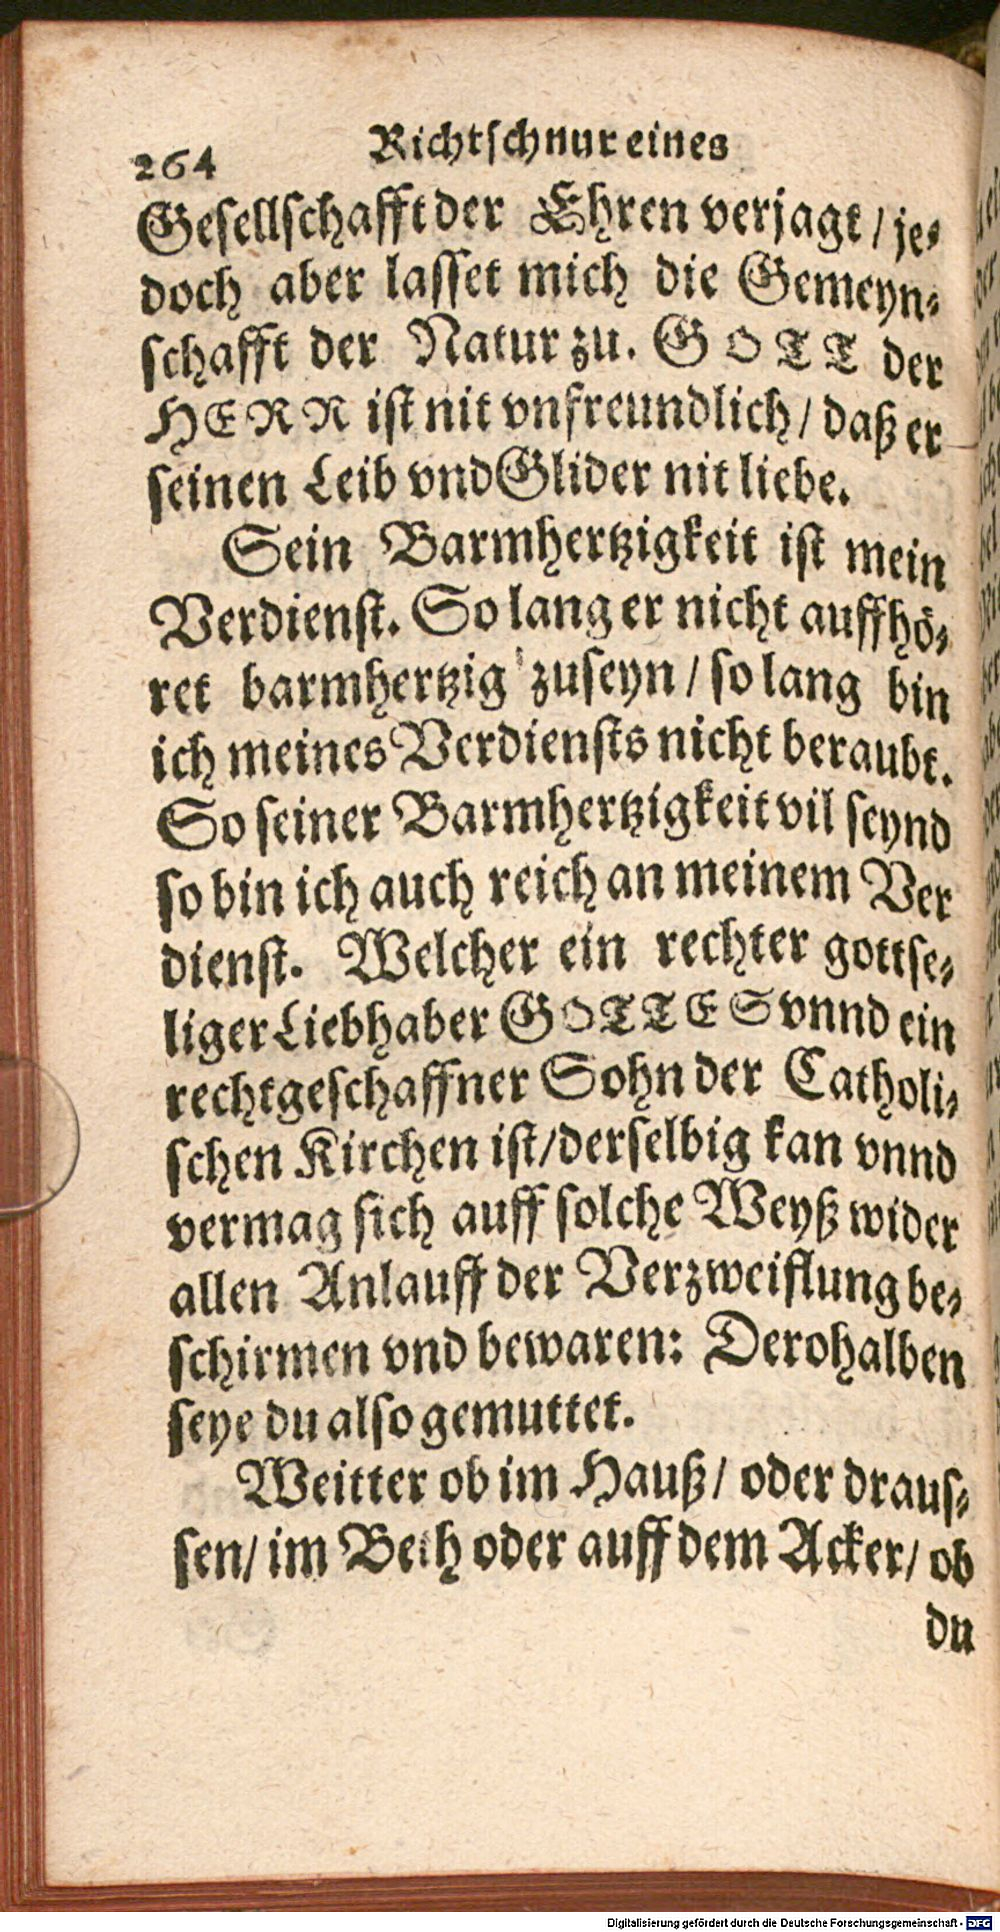 264 Richtſchnur eines
Geſellſchafft der Ehren verjagt / je⸗
doch aber laſſet mich die Gemeyn⸗
ſchafft der Natur zu. GOTT der
HERR iſt nit vnfreundlich / daß er
ſeinen Leib vnd Glider nit liebe.
Sein Barmhertzigkeit iſt mein
Verdienſt. So lang er nicht auffhö⸗
ret barmhertzig zuſeyn / ſo lang bin
ich meines Verdienſts nicht beraubt.
So ſeiner Barmhertzigkeit vil ſeynd
ſo bin ich auch reich an meinem Ver
dienſt. Welcher ein rechter gottſe⸗
liger Liebhaber GOTTES vnnd ein
rechtgeſchaffner Sohn der Catholi⸗
ſchen Kirchen iſt / derſelbig kan vnnd
vermag ſich auff ſolche Weyß wider
allen Anlauff der Verzweiflung be⸗
ſchirmen vnd bewaren: Derohalben
ſeye du alſo gemuttet.
Weitter ob im Hauß / oder drauſ⸗
ſen / im Beth oder auff dem Acker / ob
du
Digitalisierung gefördert durch die Deutsche Forschungsgemeinschaft - DFG